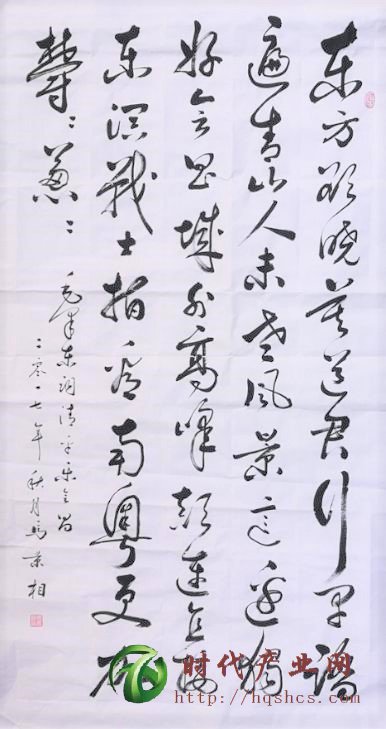 东方欲晓莫道君行早踏
遍青山人未老风景这边独
好会昌城外高峰颠连直接
东溟战士指看南粤更加
鬱〻葱〻
毛泽东词清平乐会昌
二零一七年秋月马景相
时代产业网
http://hqshcs.com